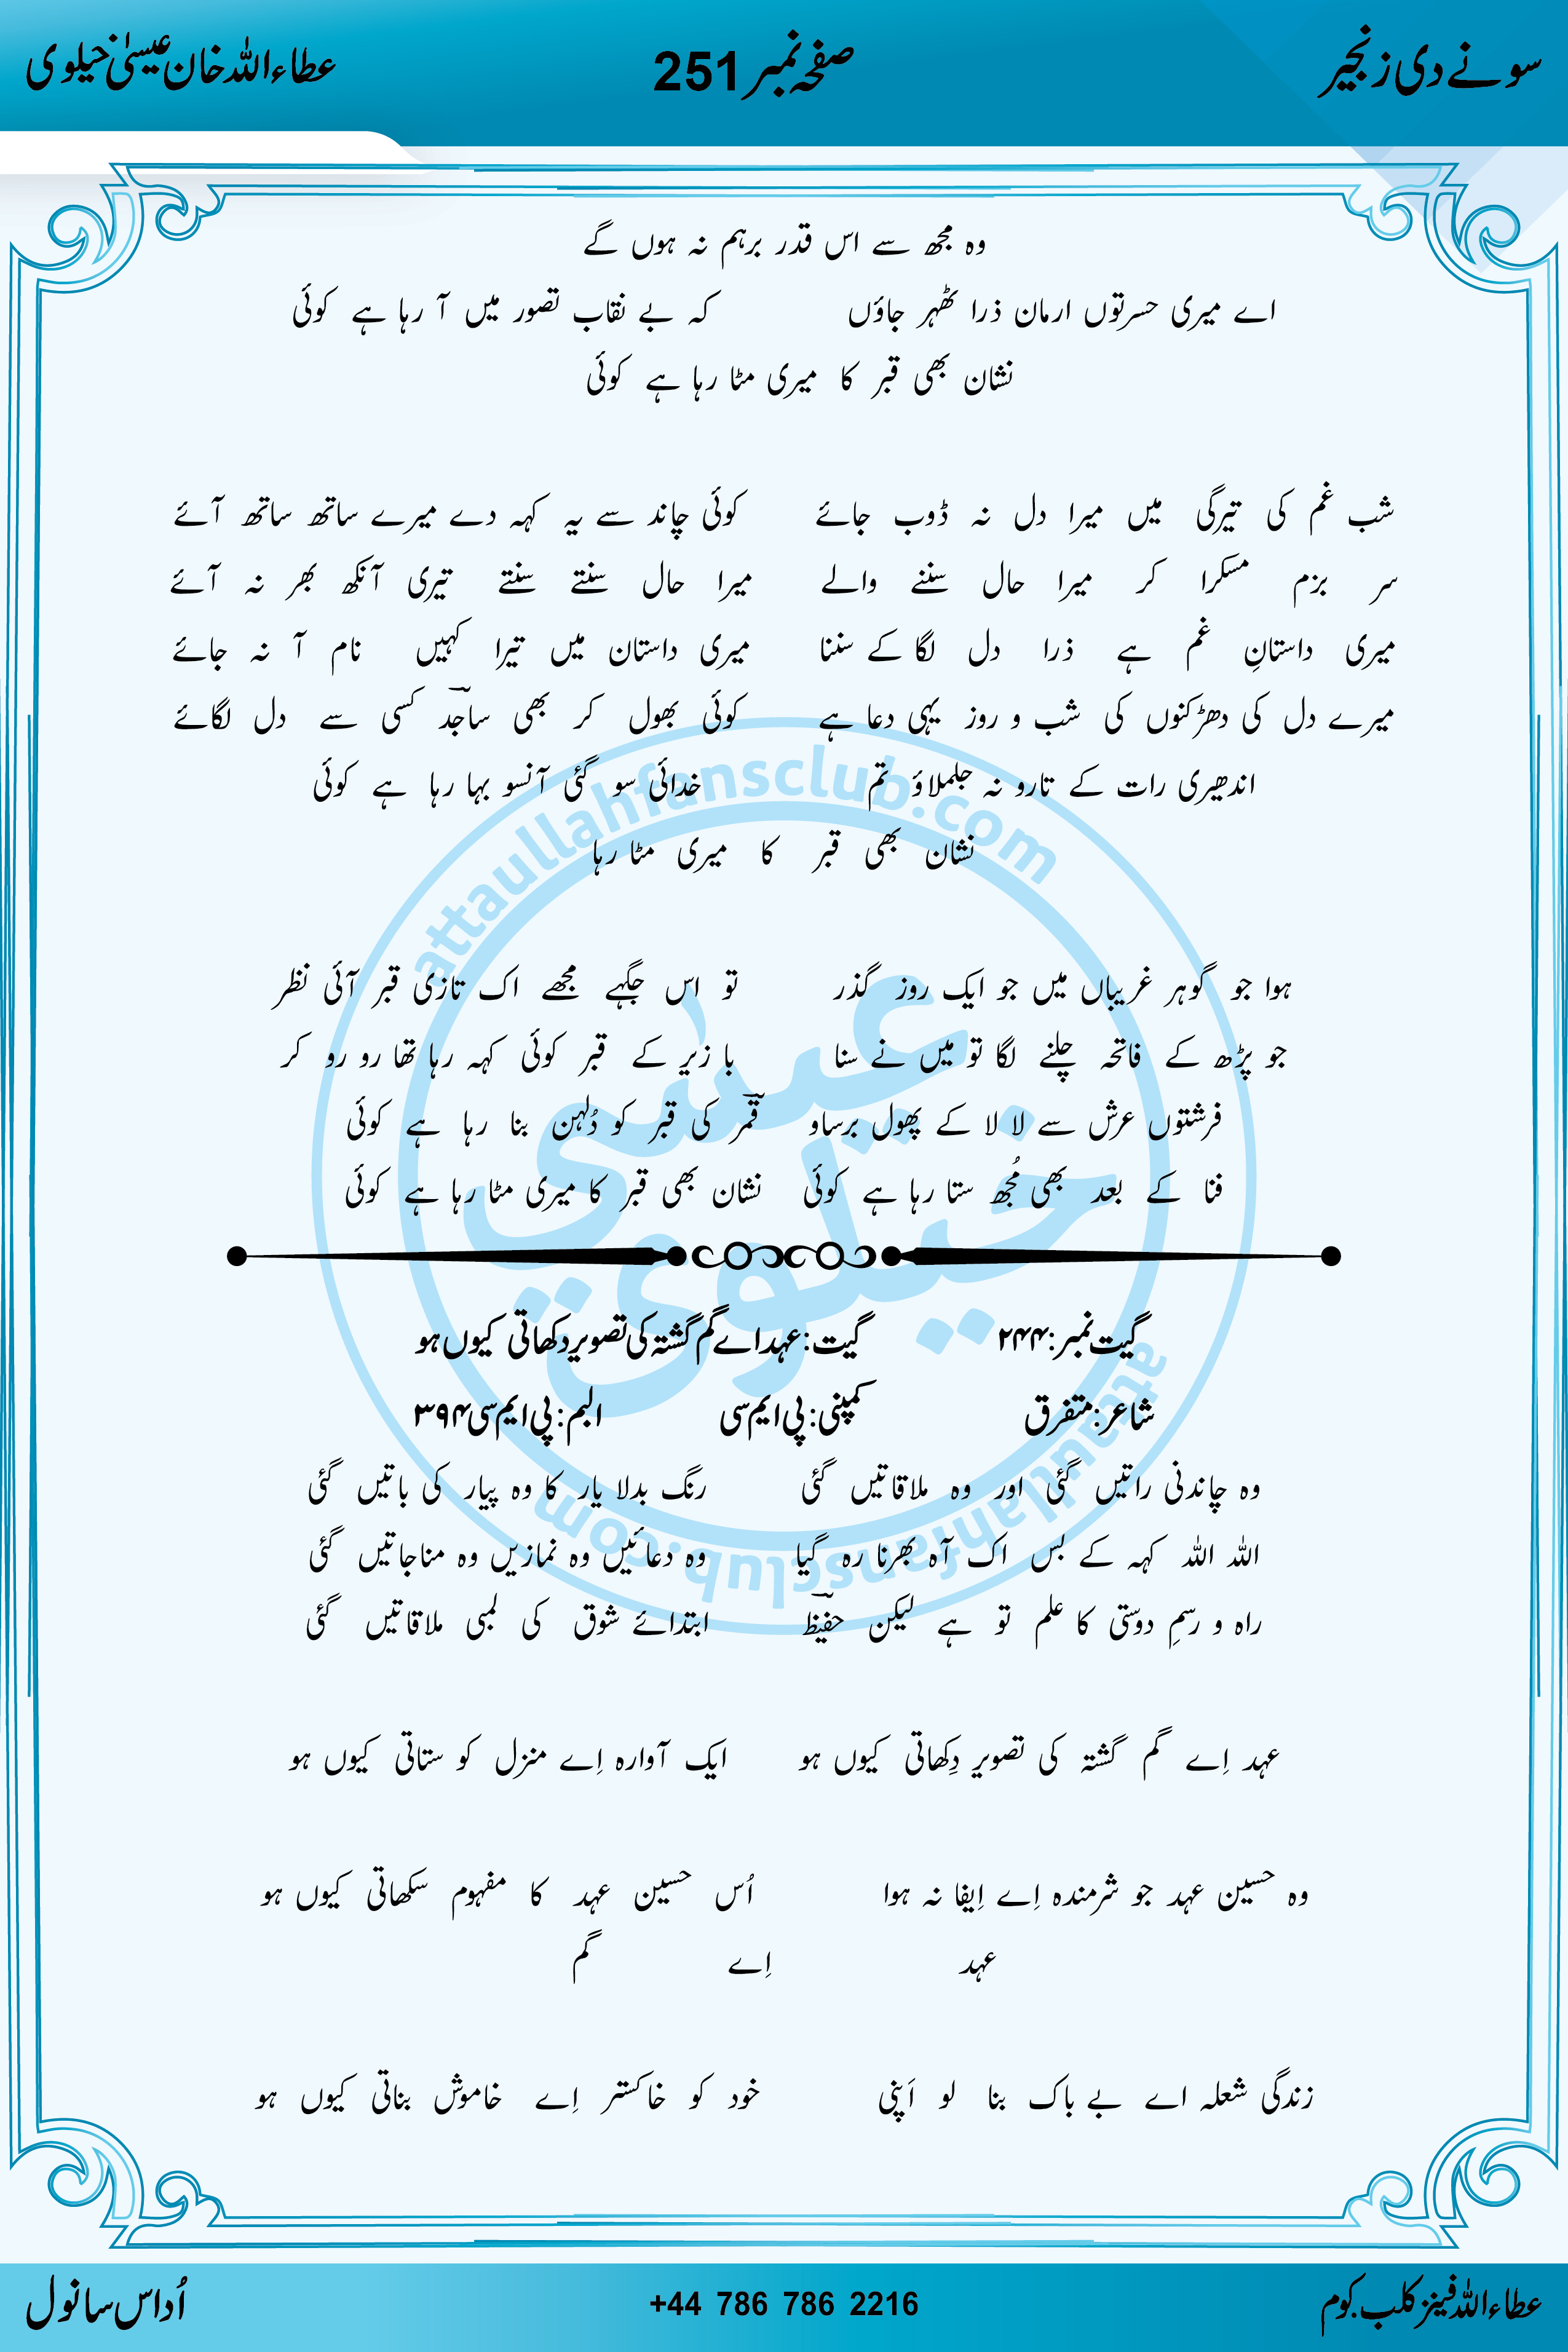 سونے دی زنجیر صفحہ نمبر 251 عطاءاللہ خان عیسیٰ خیلوی
وہ مجھ سے اس قدر برہم نہ ہوں گے
اے میری حسرتوں ارمان ذرا ٹھہر جاؤں کہ بے نقاب تصور میں آ رہا ہے کوئی
نشان بھی قبر کا میری مٹا رہا ہے کوئی
شب غم کی تیرگی میں میرا دل نہ ڈوب جائے کوئی چاند سے یہ کہہ دے میرے ساتھ ساتھ آئے
سر بزم مسکرا کر میرا حال سننے والے میرا حال سنتے سنتے تیری آنکھ بھر نہ آئے
میری داستانِ غم ہے ذرا دل لگا کے سننا میری داستان میں تیرا کہیں نام آ نہ جائے
میرے دل کی دھڑکنوں کی شب و روز یہی دعا ہے کوئی بھول کر بھی ساجد کسی سے دل لگائے
اندھیری رات کے تارو نہ جلملاؤ تم خدائی سو گئی آنسو بہا رہا ہے کوئی
نشان بھی قبر کا میری مٹا رہا
ہوا جو گوہر غریباں میں جو ایک روز گذر تو اس جگہے مجھے اک تازی قبر آئی نظر
جو پڑھ کے فاتحہ چلنے لگا تو میں نے سنا با زیر کے قبر کوئی کہہ رہا تھا رو رو کر
فرشتوں عرش سے لا لا کے پھول برساو قمر کی قبر کو دُلہن بنا رہا ہے کوئی
فنا کے بعد بھی مُجھ ستا رہا ہے کوئی نشان بھی قبر کا میری مٹا رہا ہے کوئی
گیت نمبر: ۲۴۴ گیت: عہد اے گم گشتہ کی تصویر دکھاتی کیوں ہو
شاعر: متفرق کمپنی: پی ایم سی البم: پی ایم سی ۳۹۴
وہ چاندنی راتیں گئی اور وہ ملاقاتیں گئی رنگ بدلا یار کا وہ پیار کی باتیں گئی
اللہ اللہ کہہ کے بس اک آہ بھرنا رہ گیا وہ دعائیں وہ نمازیں وہ مناجاتیں گئی
راہ و رسمِ دوستی کا علم تو ہے لیکن حفیظ ابتدائے شوق کی لمبی ملاقاتیں گئی
عہد اِے گم گشتہ کی تصویر دِکھاتی کیوں ہو ایک آوارہ اِے منزل کو ستاتی کیوں ہو
وہ حسین عہد جو شرمندہ اِے اِیفا نہ ہوا اُس حسین عہد کا مفہوم سکھاتی کیوں ہو
عہد اِے گم
زندگی شعلہ اے بے باک بنا لو اَپنی خود کو خاکستر اِے خاموش بناتی کیوں ہو
عطاءاللہ فینز کلب.کوم +44 786 786 2216 اُداس سانول
attaullahfansclub.com
عیسی خیلوی
attaullahfansclub.com